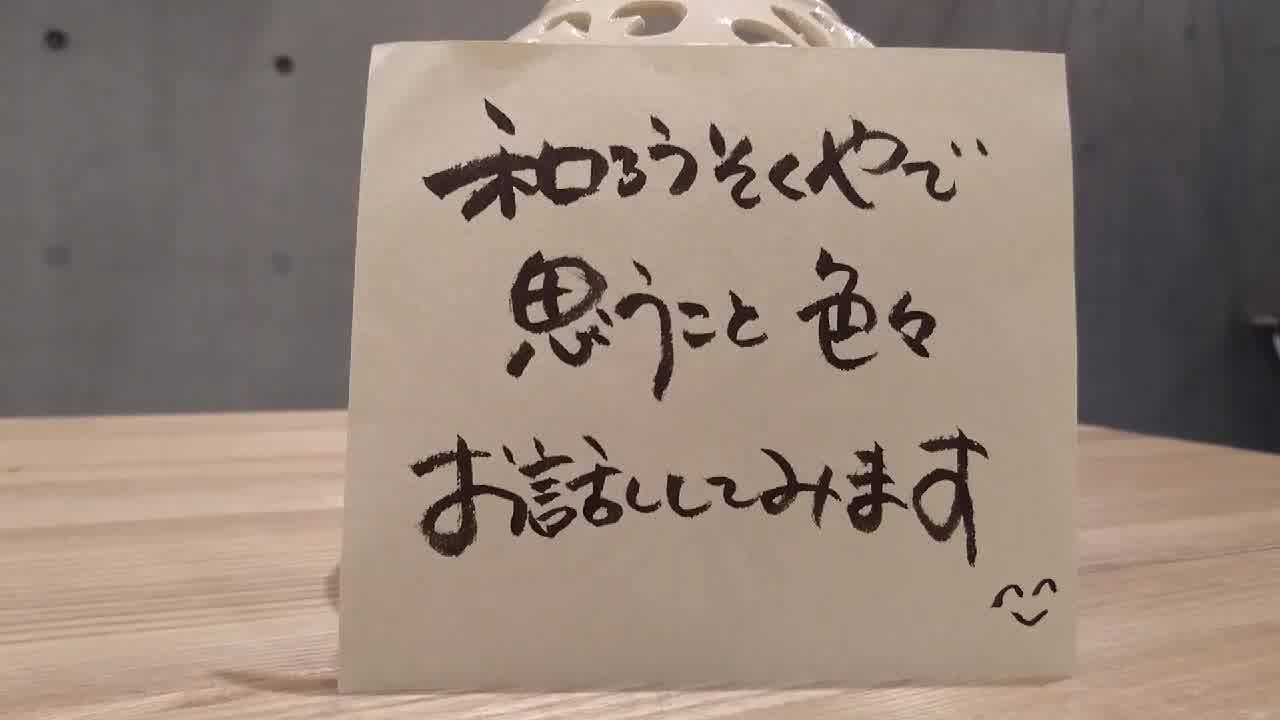 和ろうそくやで
思うこと 色々
お話ししてみます